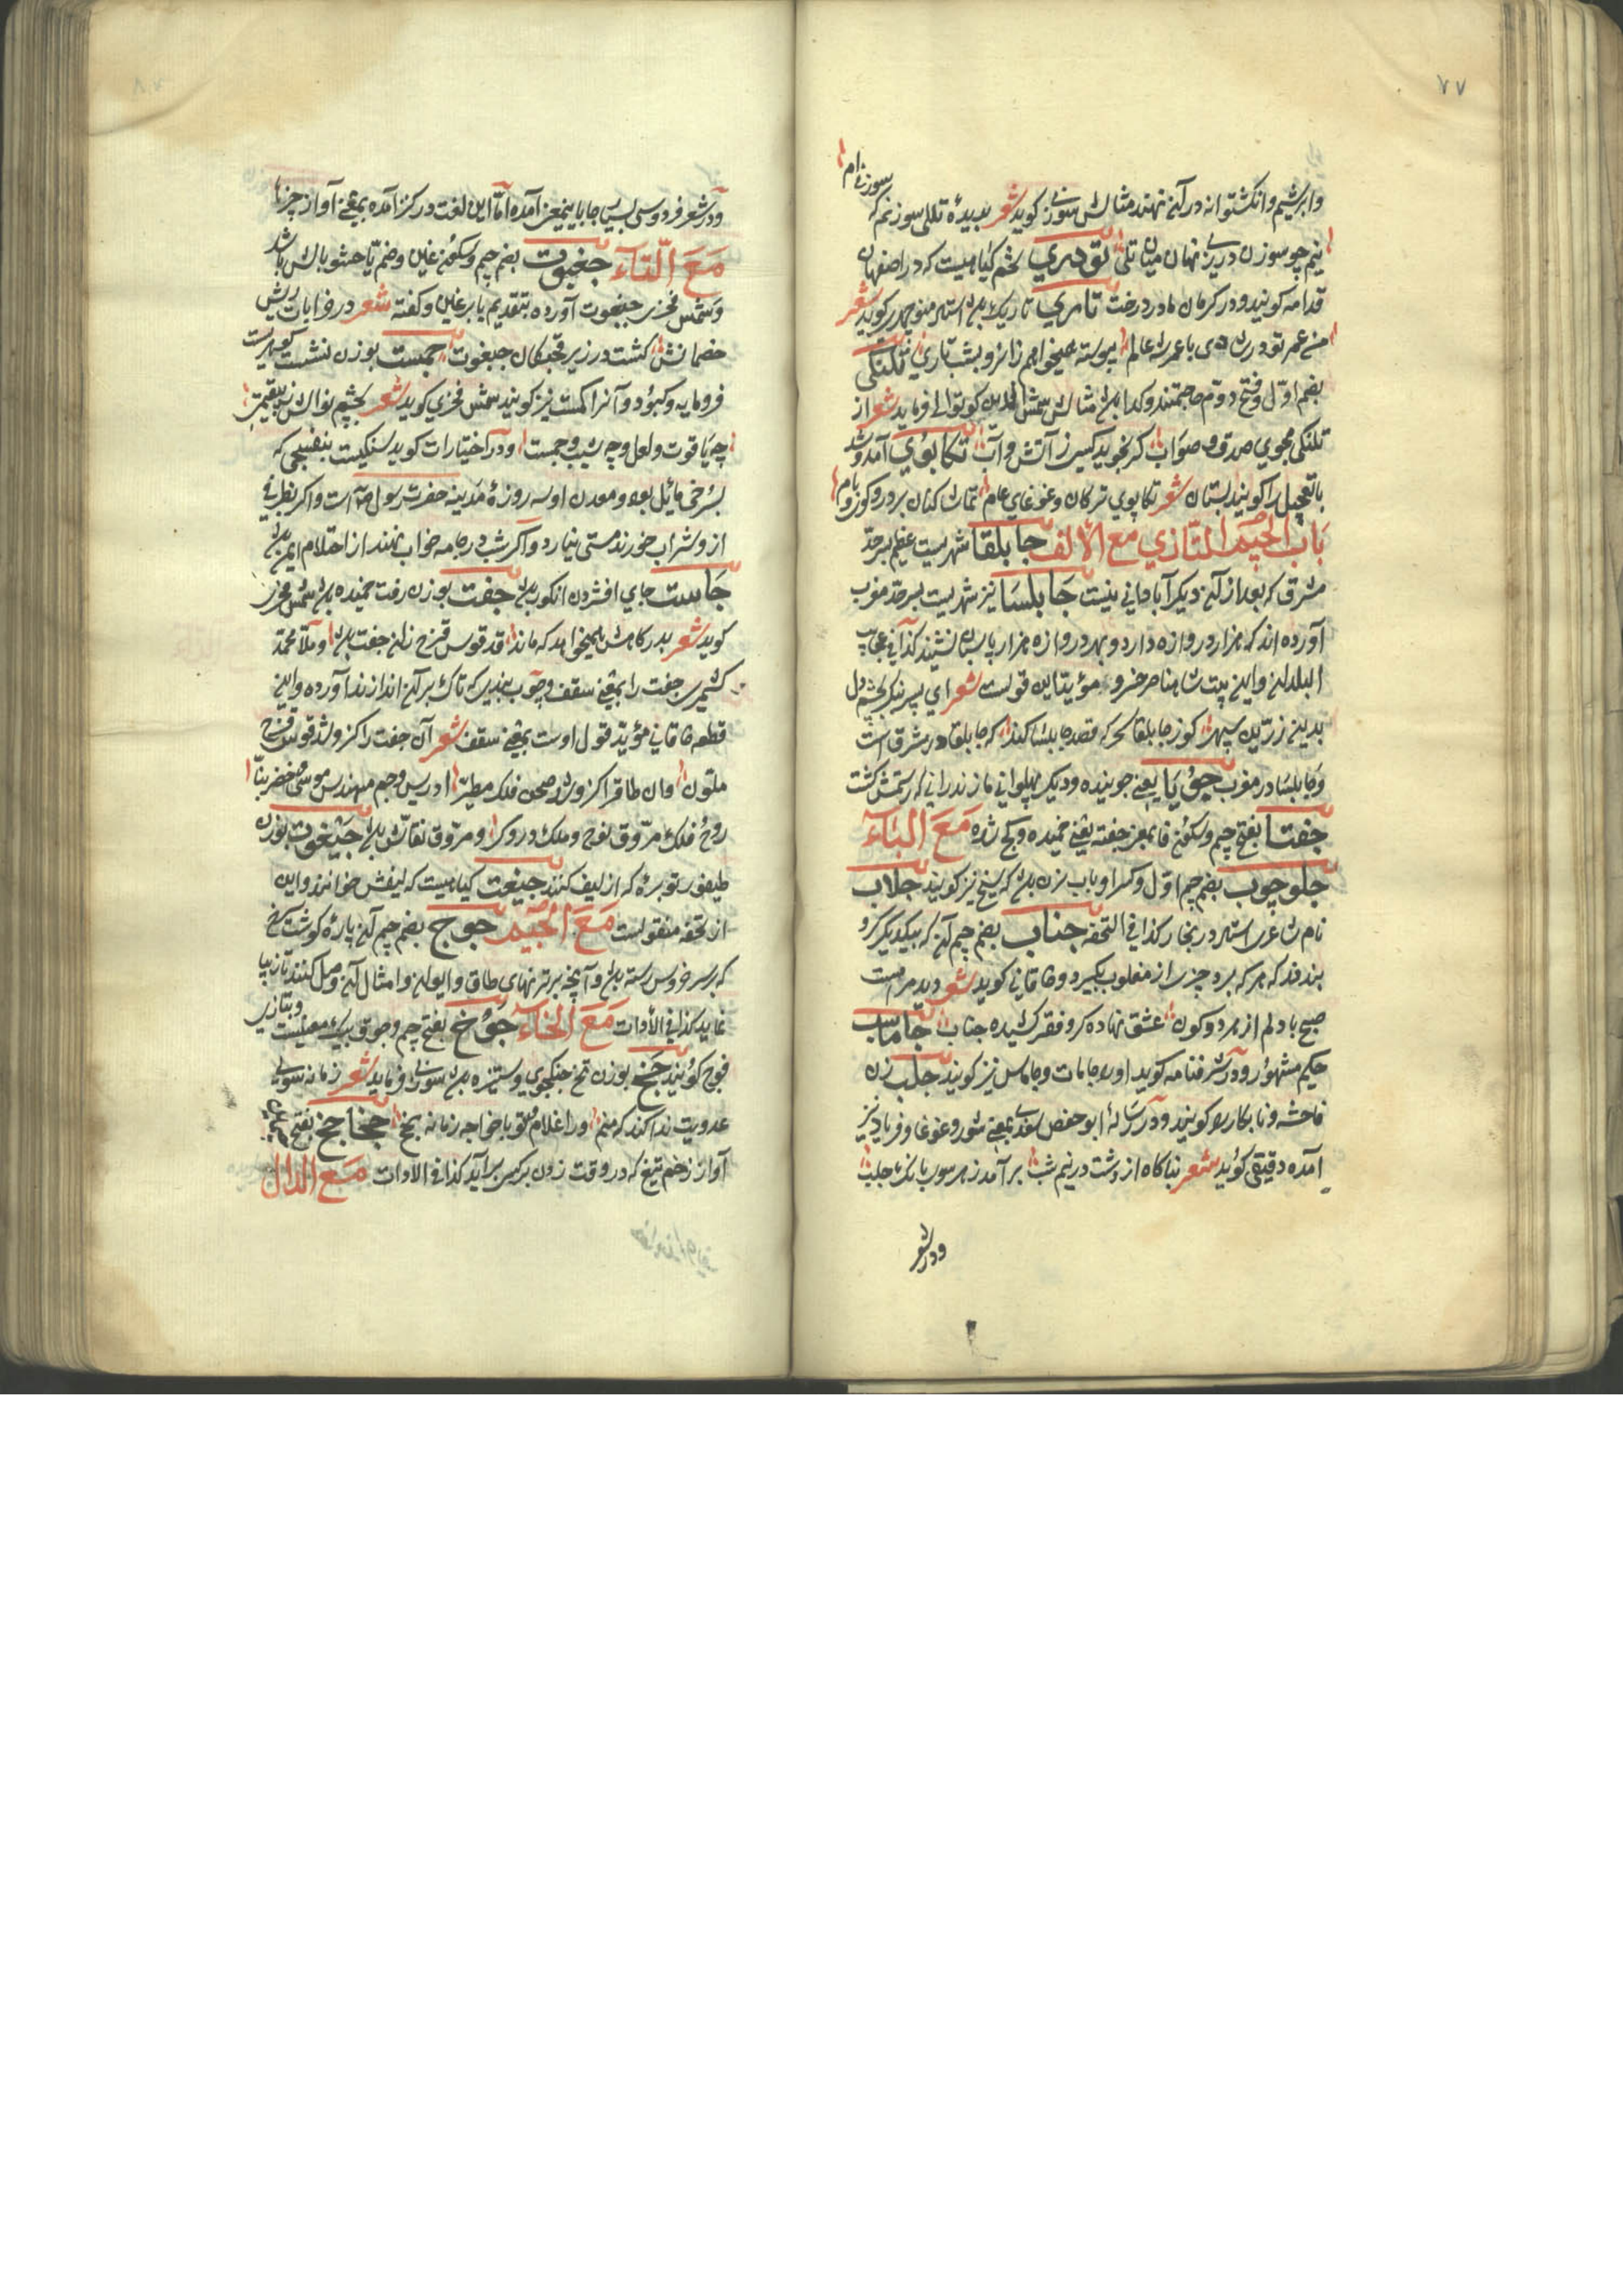 ٧٧
وابریشم وانکشتوانه در آن نهند مثالش سوزنی کوید شعر تللی سوزنم که
سوزنی ام
نیم چو سوزن درزی نهان میان تلی تودری تخم کیاهیست که در اصفهان
قدامه کویند ودر کرمان مادر درخت تاری تاریک باشد استاد منوچهری کوید شعر
عمر تو پیوسته همیخواهم زایزد بشب تاری تلنکی
بضم اول وفتح دوم حاجتمند وکدا باشد مثالش شمس الدین کوتوالی فرماید شعر از
تلنکی مجوی صدق وصواب کر نجوید کسی ز آتش وآب تکاپوی آمد وشد
بتعجیل را کویند شعر تکاپوی ترکان وغوغای عام تماشا کنان بر در وکوی وبام
باب الجیم التازی مع الألف جابلقا شهریست عظیم بسرحد
مشرق که بعد از آن دیکر آبادانی نیست جابلسا نیز شهریست بسرحد مغرب
آورده اند که هزار دروازه دارد وبهر دروازه هزار پاسبان نشیند کذا فی عجایب
البلدان واین بیت شاه ناصر خسرو مؤید این قولست شعر ای پسر بنکر بچشم دل
بدین زرین سپهر کو ز جابلقا سحرکه قصد جابلسا کند که جابلقا در مشرق است
وجابلسا در مغرب جویا یعنی جوینده ودیکر پهلوانی مازندرانی که رستمش کشت
جفتا بفتح جیم وسکون فا بمعنی جفته یعنی خمیده وکج شده مع الباء
جلوجوب بضم جیم اول وکسر واو باب زن باشد که سیخ نیز کویند جلاب
نام شاعری استاد در بخارا کذا فی التحفه جناب بضم جیم آن که بیکدیکر کرو
بندند که هرکه برد چیزی از مغلوب بکیرد وخاقانی کوید شعر دید مرا مست
صبح با دلم از هر دو کون عشق نهاده کرو فقر کشیده جناب جاماسب
حکیم مشهور ودر شرفنامه کوید او را جامات وجاماس نیز کویند جلب زن
فاحشه ونابکار را کویند ودر رسالهٔ ابو حفص سغدی بمعنی شور وغوغا وفریاد نیز
آمده دقیقی کوید شعر بناکاه از دشت در نیم شب بر آمد زهر سو بانک جلب
ودر شعر
ودر شعر فردوسی بسیار جا باین معنی آمده اما این لغت در کنز آمده بمعنی آواز چیزها
مع التاء جغبوت بضم جیم وسکون غین وضم با حشو بالش باشد
وشمس فخری جبغوت آورده بتقدیم با بر غین وکفته شعر در خرابات ریش
خصمانش کشت در زیر قحبکان جبغوت جمست بوزن نشست کوهریست
فرومایه وکبود وآنرا کمست نیز کویند شمس فخری کوید شعر بچشم نوالش نبقیمتی
چه یاقوت ولعل وچه شبه وجمست ودر اختیارات کوید سنکیست بنفسجی که
بسرخی مائل بود ومعدن او سه روزهٔ مدینه حضرت رسول است واکر بظرفی
ازو شراب خورند مستی نیارد واکر شب در جامه خواب نهند از احتلام ایمن باشند
جاست جای افشردن انکور باشد جفت بوزن رفت خمیده باشد شمس فخری
کوید شعر بدر کاهش همیخواهد که ماند قد قوس قزح زان جفت باشد وملا محمد
کشمیری جفت را بمعنی سقف وچوب بندی که تاک بر آن اندازند آورده واین
قطعه خاقانی مؤید قول اوست بمعنی سقف شعر آن جفت را کزو شد قوس قزح
ملون وان طاق را کزو شد صحن فلک مطیر ادریس وجم مهندس موسی وخضر بنا
روح فلک مروق نوح وملک دروکر ومروق نقاش باشد جیغوت بوزن
طیفور توبره که از لیف کنند جیغت کیاهیست که لیفش خوانند واین
از تحفه منقولست مع الجیم جوج بضم جیم آن پارهٔ کوشت سرخ
که بر سر خروس رسته باشد وآنچه بر ترنهای طاق وایوان وامثال آن وصل کنند تا زیبا
نماید کذا فی الأدات مع الخاء جوخ بفتح جیم وجوق بیک معنیست وبتازی
فوج کویند جخ بوزن تخ جنکجوی وستیزه باشد سوزنی فرماید شعر زمانه سوی
عدویت ندا کند که منم ورا غلام تو با خواجه زمانه بجخ جخاجخ بفتح
آواز زخم تیغ که در وقت زدن بر کسی برآید کذا فی الادات مع الدال